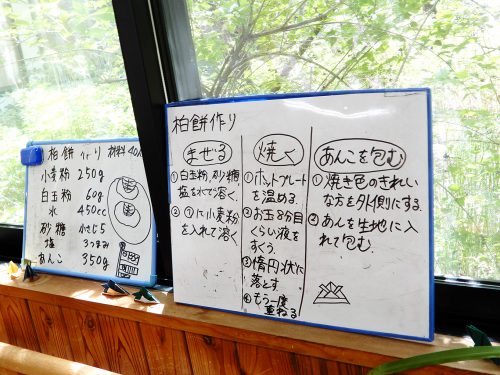 柏餅作り 材料40人
小麦粉 250g
白玉粉 60g
水 450cc
砂糖 小さじ5
塩 3つまみ
あんこ 350g
柏餅作り
まぜる
①白玉粉、砂糖、
塩を水で溶く。
②①に小麦粉
を入れて溶く。
焼く
①ホットプレート
を温める。
②お玉8分目
くらい液を
すくう。
③楕円状に
落とす
④もう一度
重ねる
あんこを包む
①焼き色のきれい
な方を外側にする。
②あんを生地に入
れて包む。